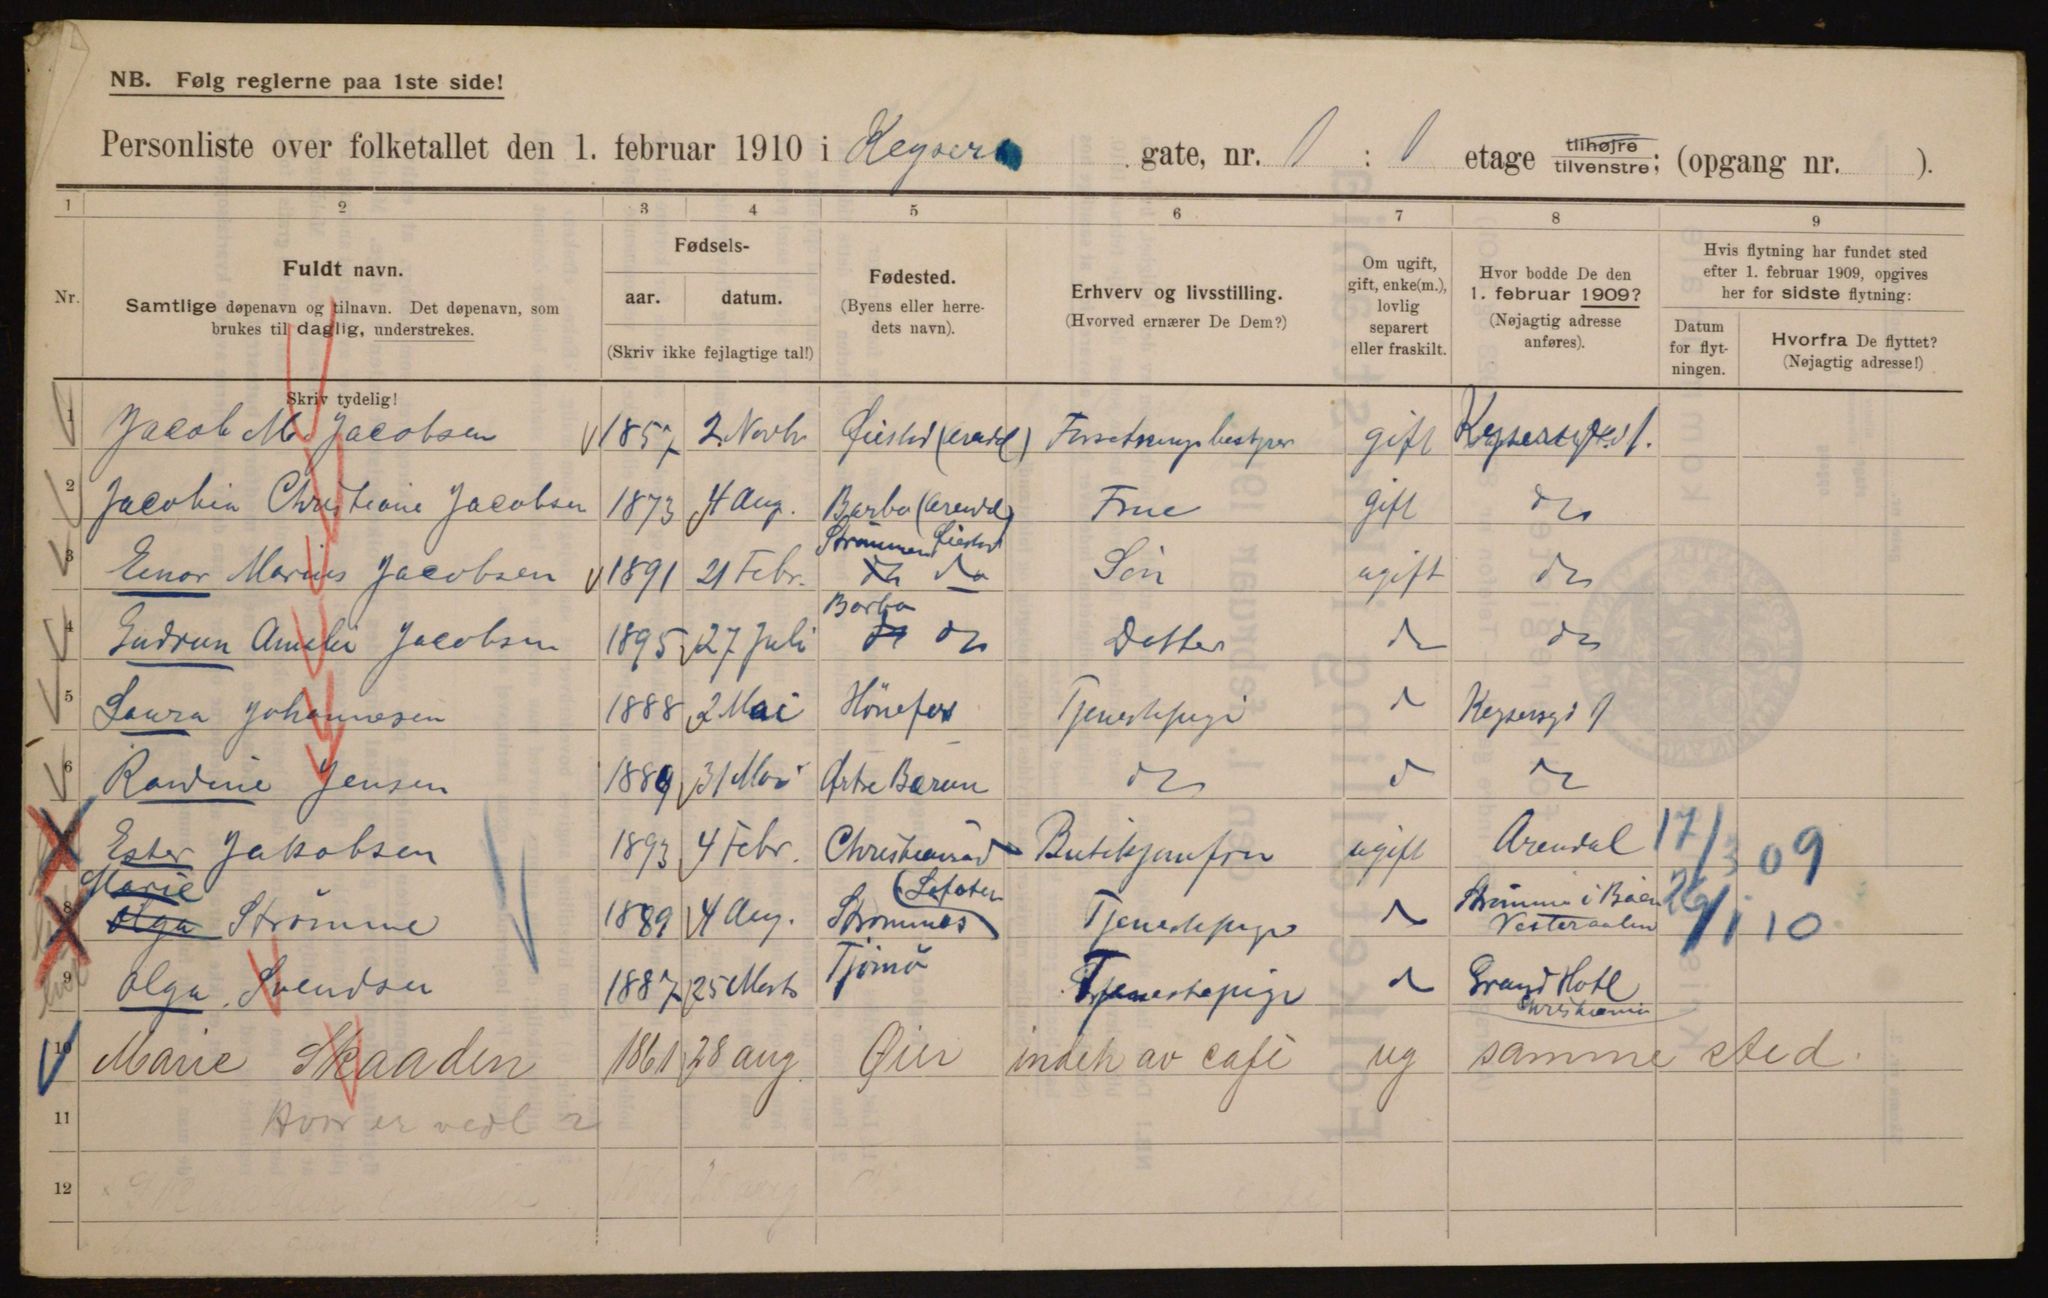 NB. Følg reglerne paa 1ste side!
Personliste over folketallet den 1. februar 1910 i Keysers gate, nr. 1 : 1 etage tilhøjre tilvenstre; (opgang nr. ).
1 2 3 4 5 6 7 8 9
Nr.
Fuldt navn.
Samtlige døpenavn og tilnavn. Det døpenavn, som
brukes til daglig, understrekes.
Skriv tydelig!
Fødsels-
aar. datum.
(Skriv ikke fejlagtige tal!)
Fødested.
(Byens eller herre-
dets navn).
Erhverv og livsstilling.
(Hvorved ernærer De Dem?)
Om ugift,
gift, enke(m.),
lovlig
separert
eller fraskilt.
Hvor bodde De den
1. februar 1909?
(Nøjagtig adresse
anføres).
Hvis flytning har fundet sted
efter 1. februar 1909, opgives
her for sidste flytning:
Datum
for flyt-
ningen.
Hvorfra De flyttet?
(Nøjagtig adresse!)
1 Jacob M. Jacobsen 1857 2. Novbr Øiestad (Arendal) Forretningsbestyrer gift Keysersgd 1.
2 Jacobin Christiane Jacobsen 1873 4 Aug. Barbo (Arendal) Frue gift do
Strømmen Øiestad
3 Einar Marius Jacobsen 1891 21 Febr. do do Søn ugift do
Barbo
4 Gudrun Amalie Jacobsen 1895 27 Juli do do Datter do do
5 Laura Johannesen 1888 2 Mai Hönefos Tjenestepige do Keysersgd 1
6 Randine Jensen 1889 31 Mai Østre Bærum do do do
7 Ester Jakobsen 1893 4 Febr. Christiansad Butikjomfru ugift Arendal 17/3 09
Marie (Lofoten
8 Olga Strömme 1889 4 Aug. Strömmes Tjenestepige do Strömme i Böen Vesteraalen 26/1 10
9 Olga Svendsen 1887 25 Marts Tjömö Tjenestepige do Grand Hotl Christiania
10 Marie Skaaden 1861 28 aug Øier indeh av café ug samme sted.
11 Hvor er vedk ?
12